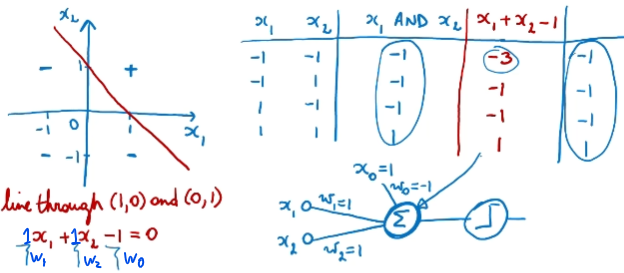 x₂
− 1 +
-1 0 1 x₁
− -1 −
line through (1,0) and (0,1)
1x₁ + 1x₂ - 1 = 0
w₁ w₂ w₀
x₁ x₂ x₁ AND x₂ x₁ + x₂ - 1
-1 -1 -1 -3 -1
-1 1 -1 -1 -1
1 -1 -1 -1 -1
1 1 1 1 1
x₀=1
w₀=-1
x₁ w₁=1
Σ
x₂ w₂=1